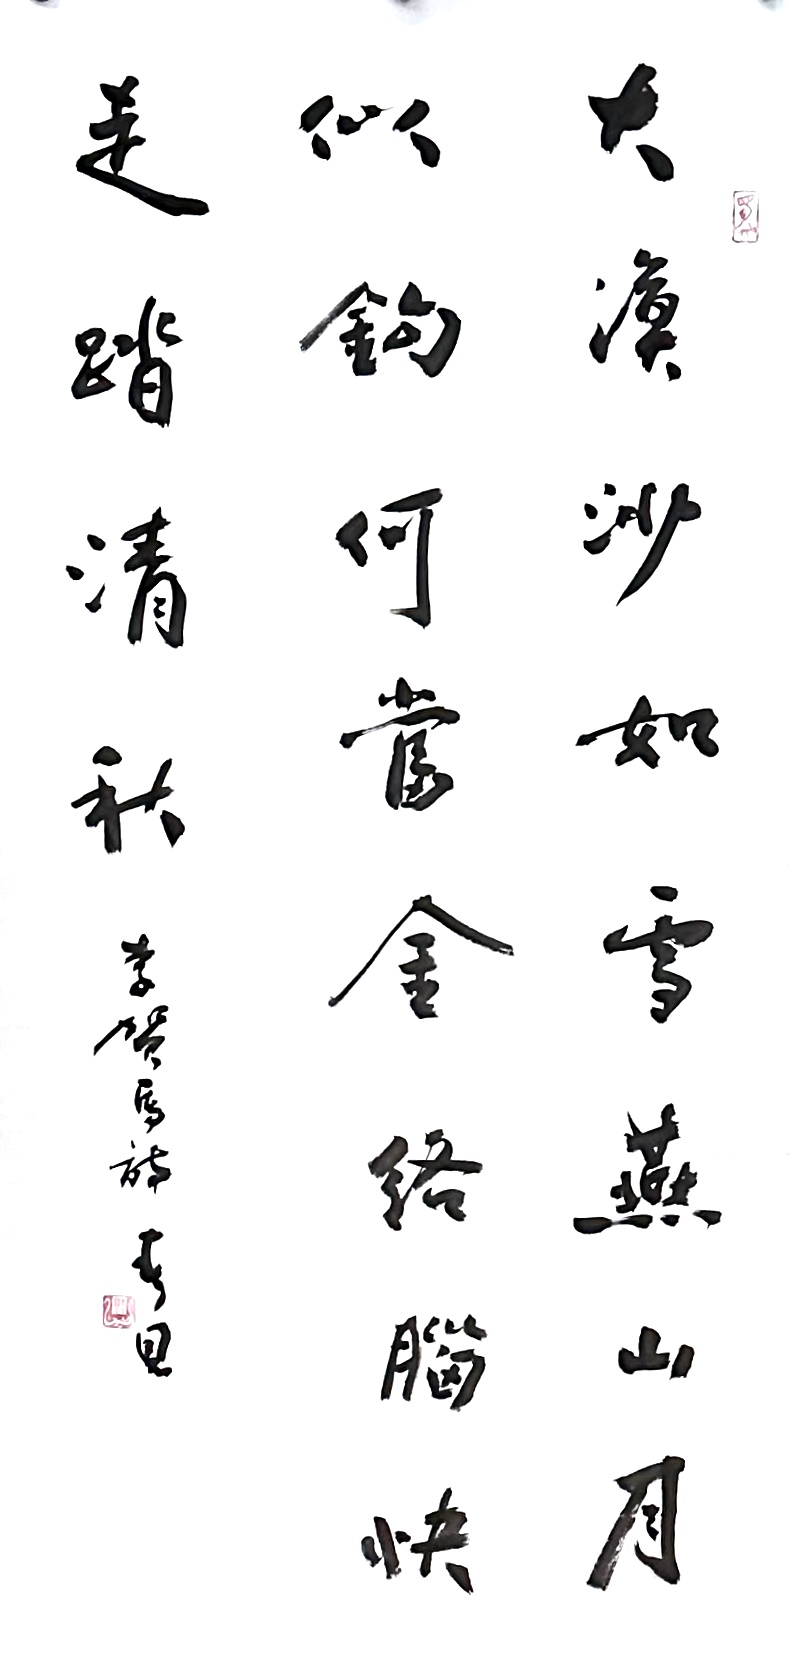 大漠沙如雪燕山月
似鈎何當金络腦快
走踏清秋
李贺马诗 春思